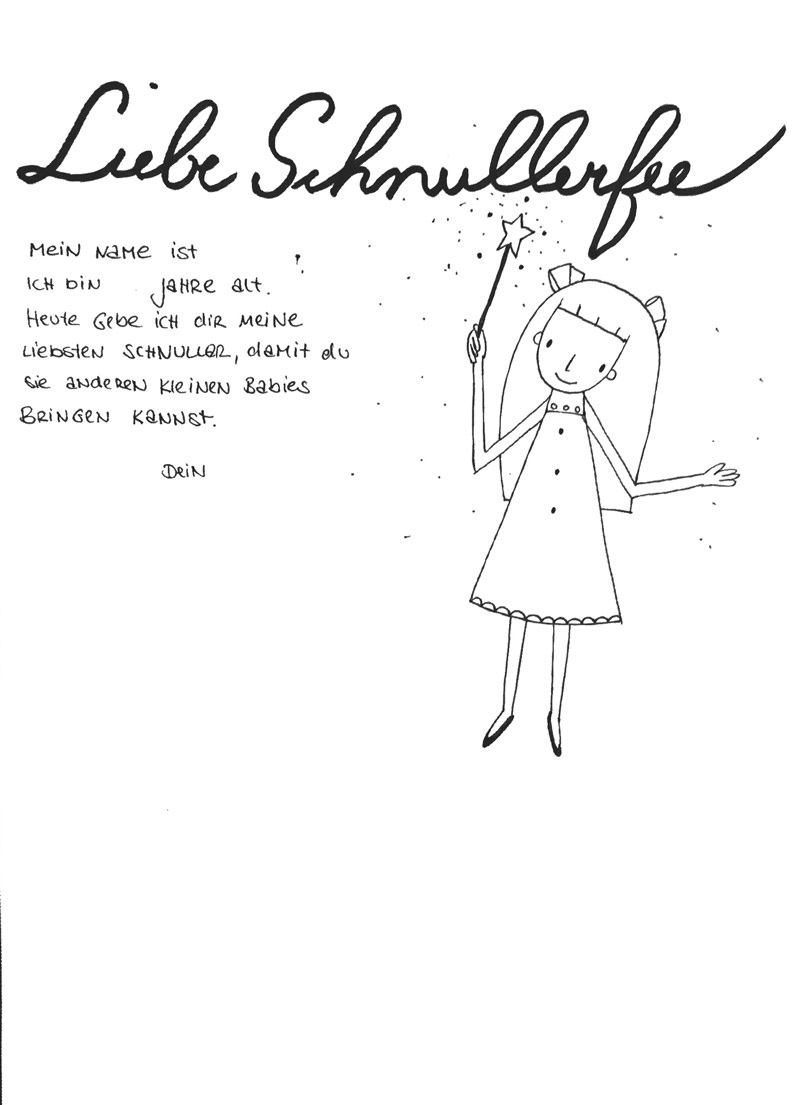 Liebe Schnullerfee
Mein Name ist !
Ich bin Jahre alt.
Heute gebe ich dir meine
liebsten Schnuller, damit du
sie anderen kleinen Babies
bringen kannst.
Dein